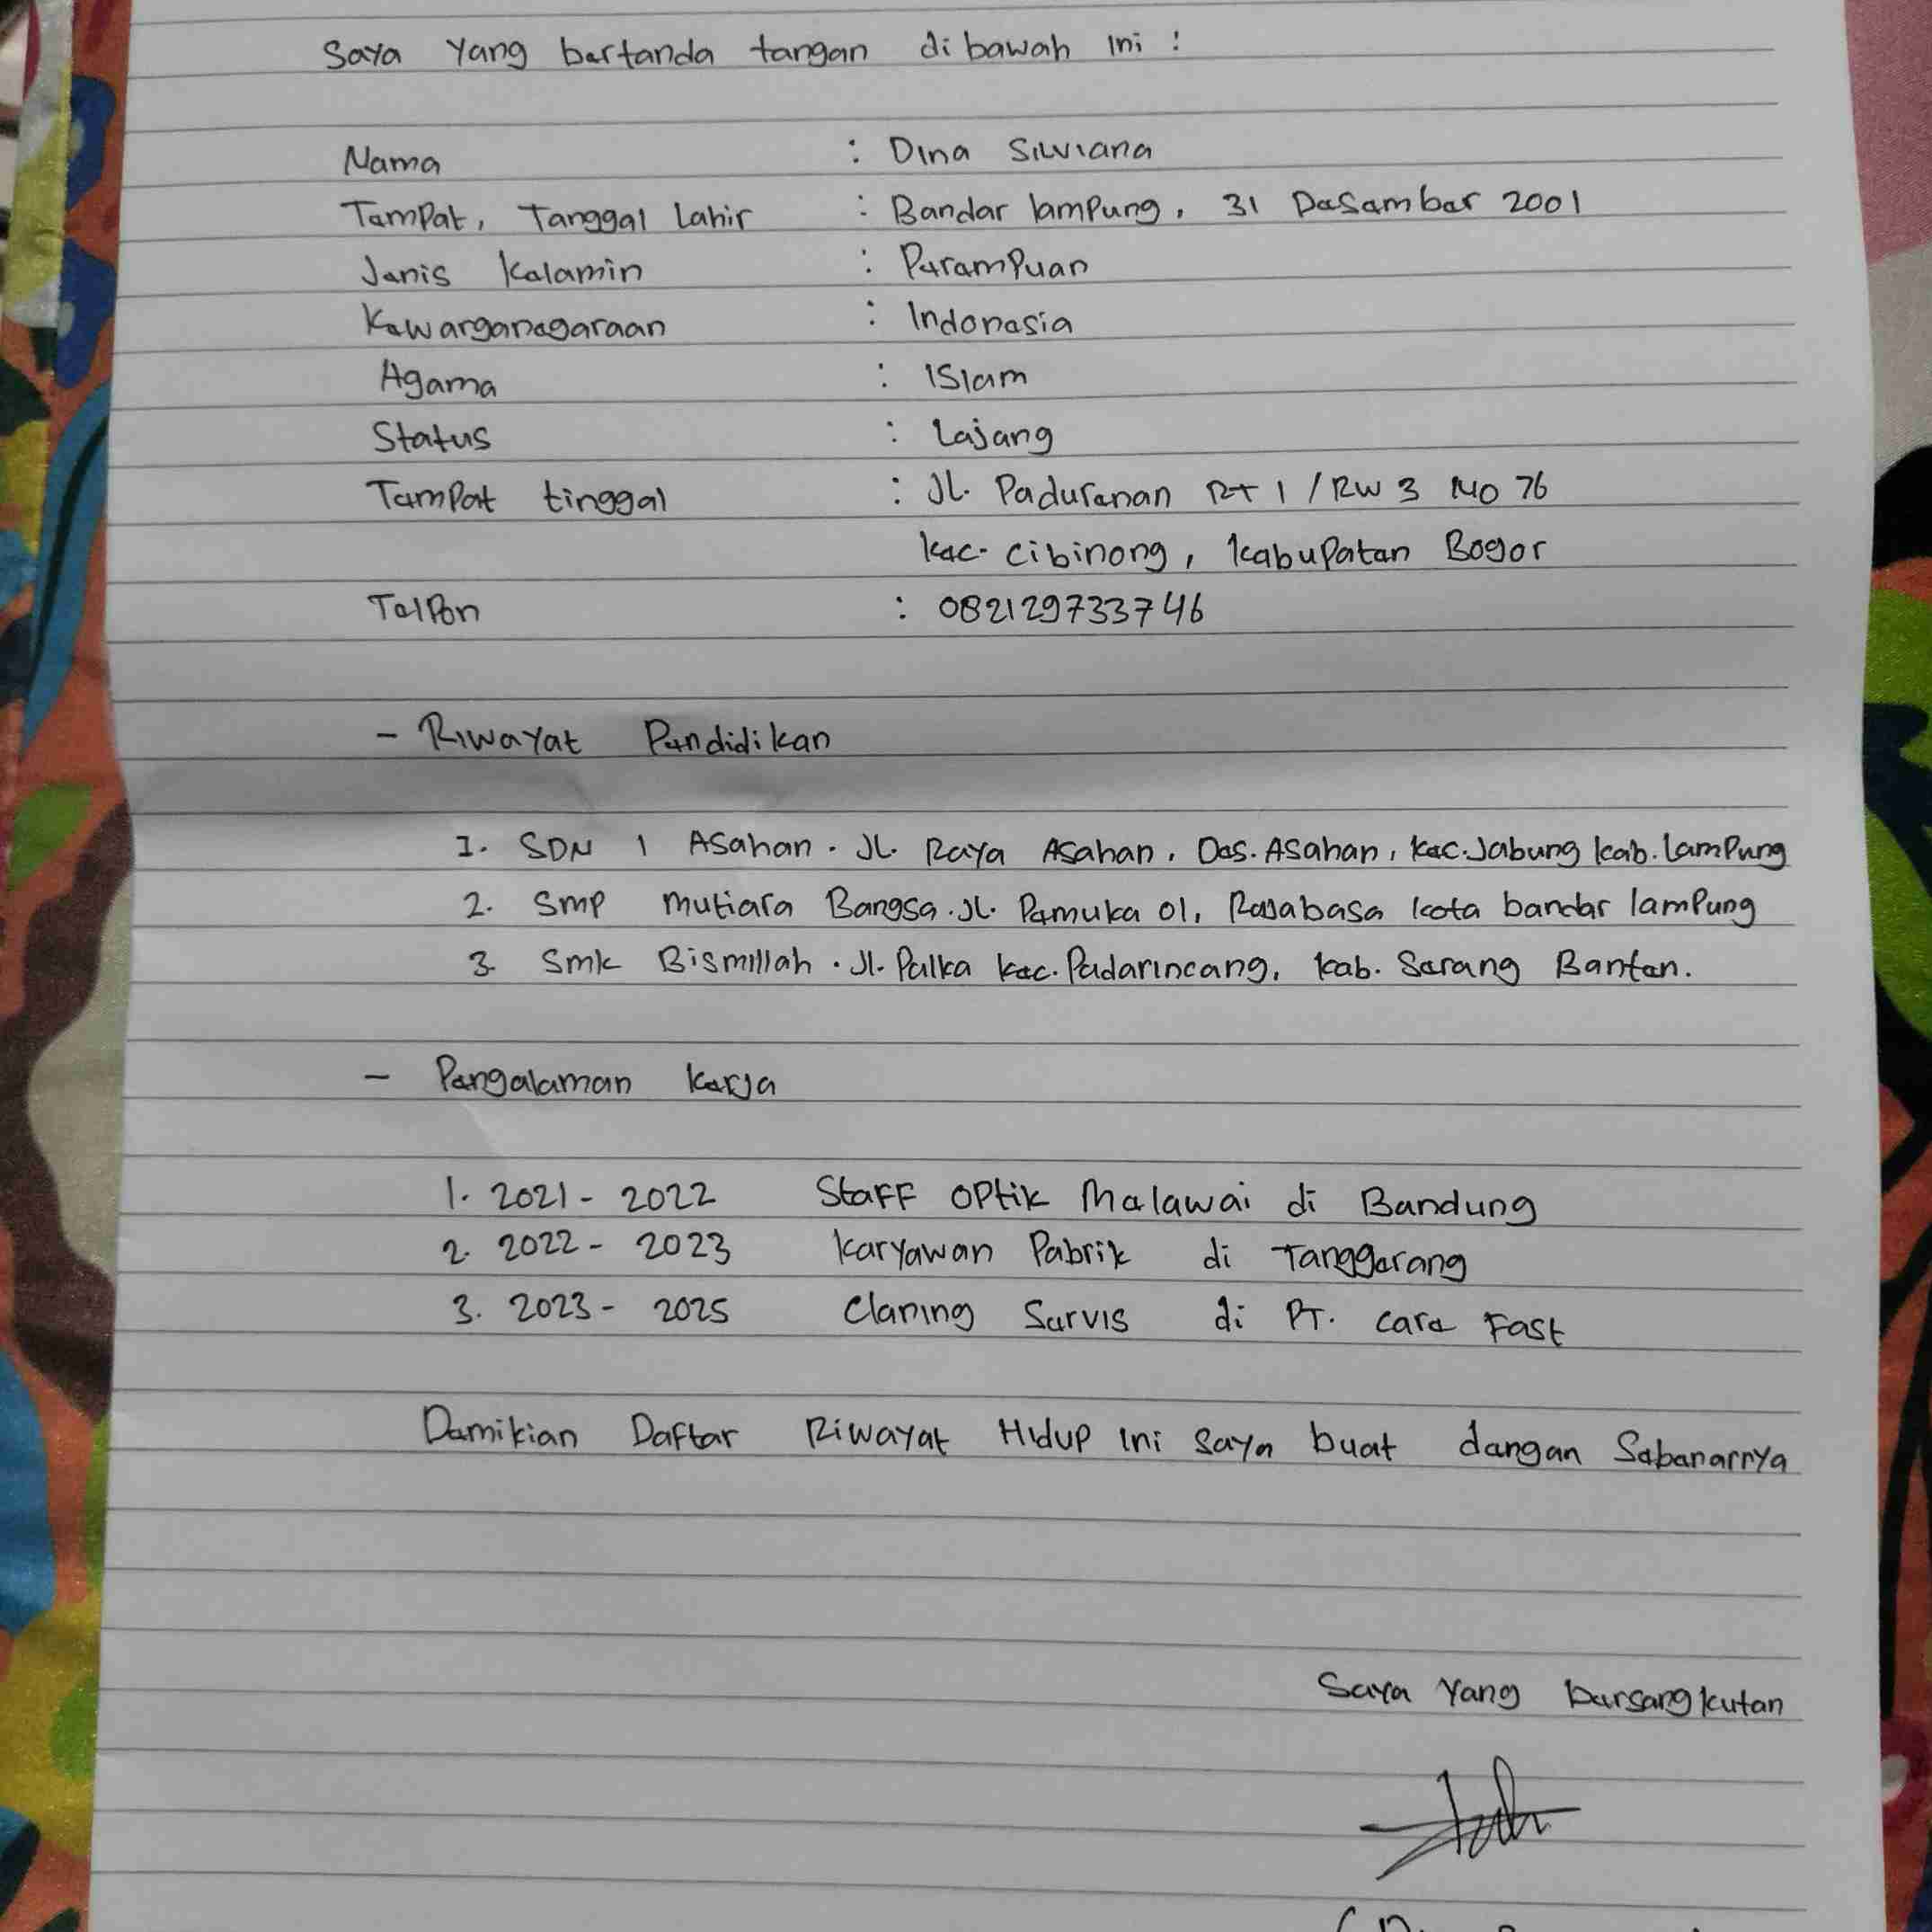 Saya yang bertanda tangan dibawah ini :
Nama : Dina Silviana
Tempat, Tanggal Lahir : Bandar lampung, 31 Desember 2001
Jenis Kelamin : Perempuan
Kewarganegaraan : Indonesia
Agama : Islam
Status : Lajang
Tempat tinggal : Jl. Padurenan RT 1 / RW 3 No 76
kec. cibinong, kabupaten Bogor
Telpon : 082129733746
- Riwayat Pendidikan
1. SDN 1 Asahan. Jl. Raya Asahan, Des. Asahan, kec. Jabung kab. lampung
2. Smp mutiara Bangsa. Jl. Pemuka 01, Rajabasa kota bandar lampung
3. Smk Bismillah. Jl. Palka kec. Padarincang, kab. Serang Banten.
- Pengalaman kerja
1. 2021 - 2022 Staff Optik Melawai di Bandung
2. 2022 - 2023 karyawan Pabrik di Tanggerang
3. 2023 - 2025 Clening Servis di PT. care Fast
Demikian Daftar Riwayat Hidup ini saya buat dengan Sebenarnya
Saya yang bersangkutan